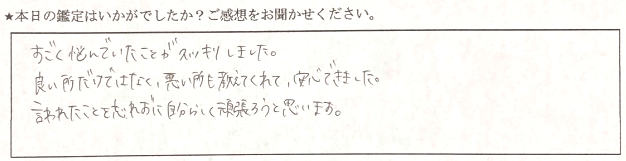 ★本日の鑑定はいかがでしたか？ご感想をお聞かせください。
すごく悩んでいたことがスッキリしました。
良い所だけではなく、悪い所も教えてくれて、安心できました。
言われたことを忘れずに自分らしく頑張ろうと思います。